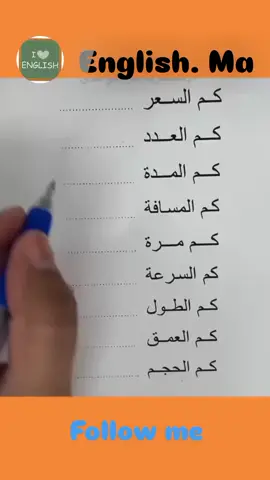 I
ENGLISH
English. Ma
كم السعر
كم العدد
كم المدة
كم المسافة
كم مرة
كم السرعة
كم الطول
كم العمق
كم الحجم
Follow me